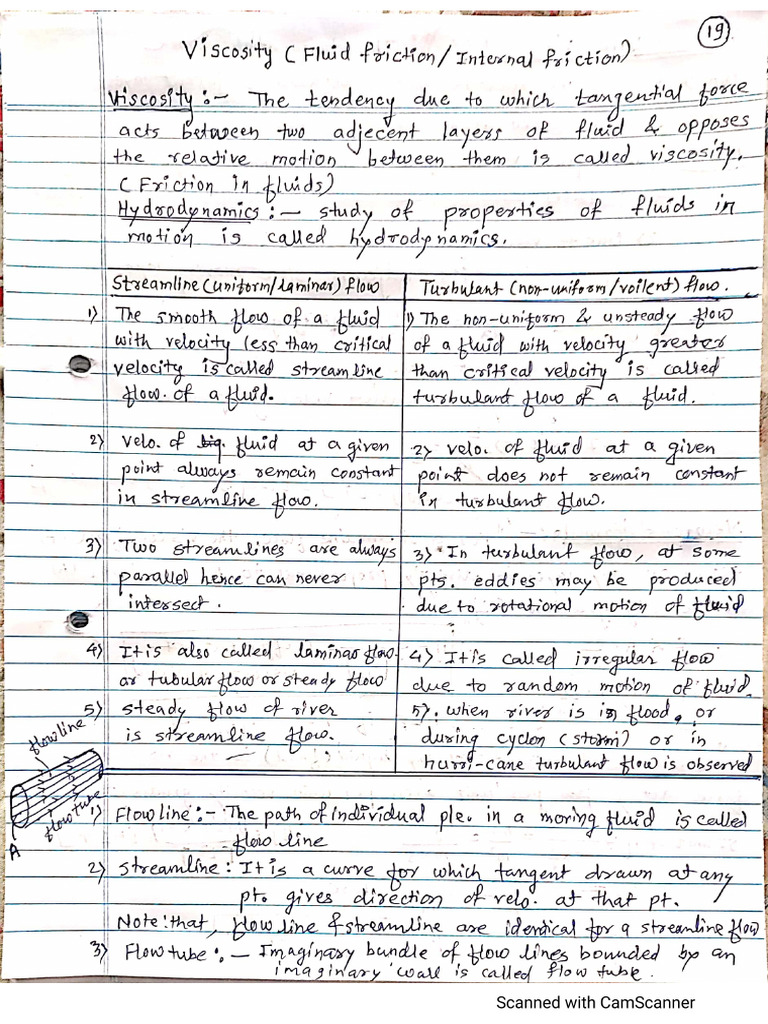 19
Viscosity (Fluid friction/Internal friction)
Viscosity :- The tendency due to which tangential force
acts between two adjecent layers of fluid & opposes
the relative motion between them is called viscosity.
(Friction in fluids)
Hydrodynamics :- study of properties of fluids in
motion is called hydrodynamics.
Streamline (uniform/laminar) flow
1) The smooth flow of a fluid
with velocity less than critical
velocity is called streamline
flow. of a fluid.
2) velo. of fluid at a given
point always remain constant
in streamline flow.
3) Two streamlines are always
parallel hence can never
intersect.
4) It is also called laminar flow
or tubular flow or steady flow
5) steady flow of river
is streamline flow.
Turbulant (non-uniform/voilent) flow.
1) The non-uniform & unsteady flow
of a fluid with velocity greater
than critical velocity is called
turbulant flow of a fluid.
2) velo. of fluid at a given
point does not remain constant
in turbulant flow.
3) In turbulant flow, at some
pts. eddies may be produced
due to rotational motion of fluid
4) It is called irregular flow
due to random motion of fluid.
5). when river is in flood, or
during cyclon (storm) or in
hurri-cane turbulant flow is observed
flow line
flow tube
A
1) Flow line :- The path of individual ple. in a moring fluid is called
flow line
2) streamline : It is a curve for which tangent drawn at any
pt. gives direction of velo. at that pt.
Note: that, flow line & streamline are identical for a streamline flow
3) Flow tube :- Imaginary bundle of flow lines bounded by an
imaginary wall is called flow tube.
Scanned with CamScanner